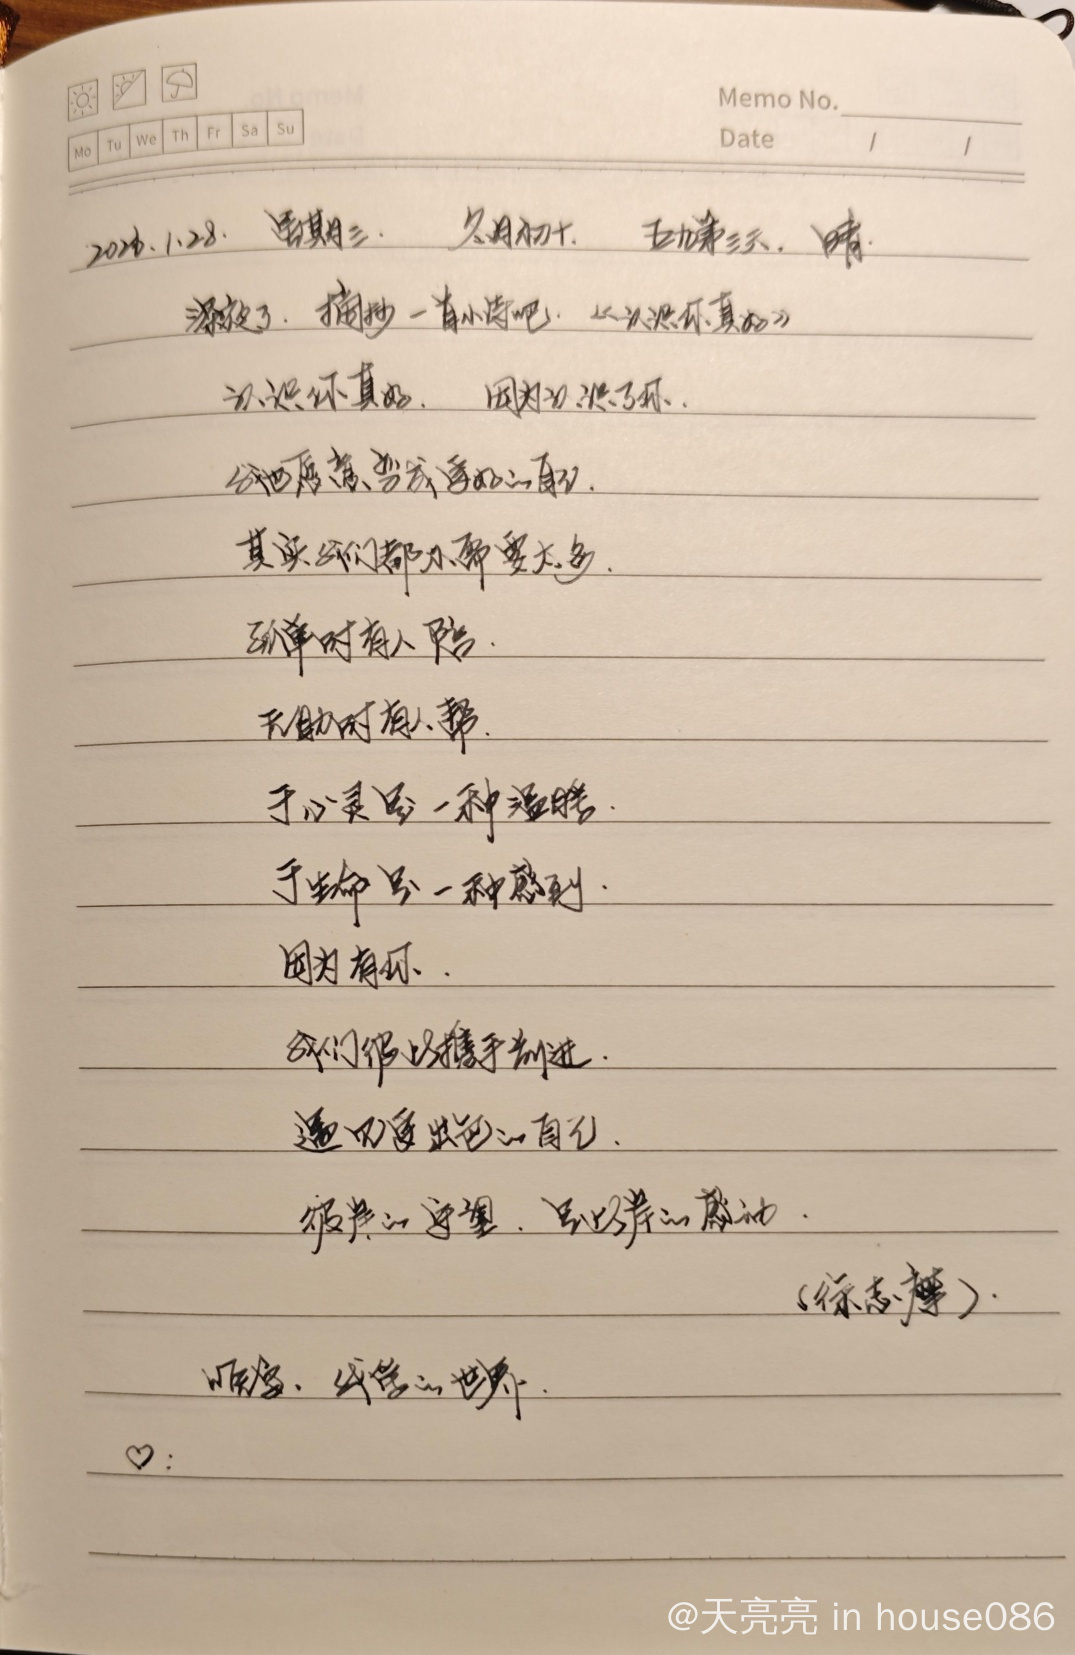 Memo No.
Mo Tu We Th Fr Sa Su
Date / /
2026.1.28. 星期三. 腊月初十. 五九第三天. 晴.
深夜了. 摘抄一首小诗吧. 《认识你真好》
认识你真好. 因为认识了你.
我也愿意尝试更好的自己.
其实我们都不需要太多.
孤单时有人陪.
无助时有人帮.
于心灵是一种温暖.
于生命是一种感动.
因为有你.
我们彼此携手前进.
遇见更出色的自己.
彼岸的守望. 是此岸的感动.
(徐志摩).
晚安. 我的世界.
♡:
@天亮亮 in house086